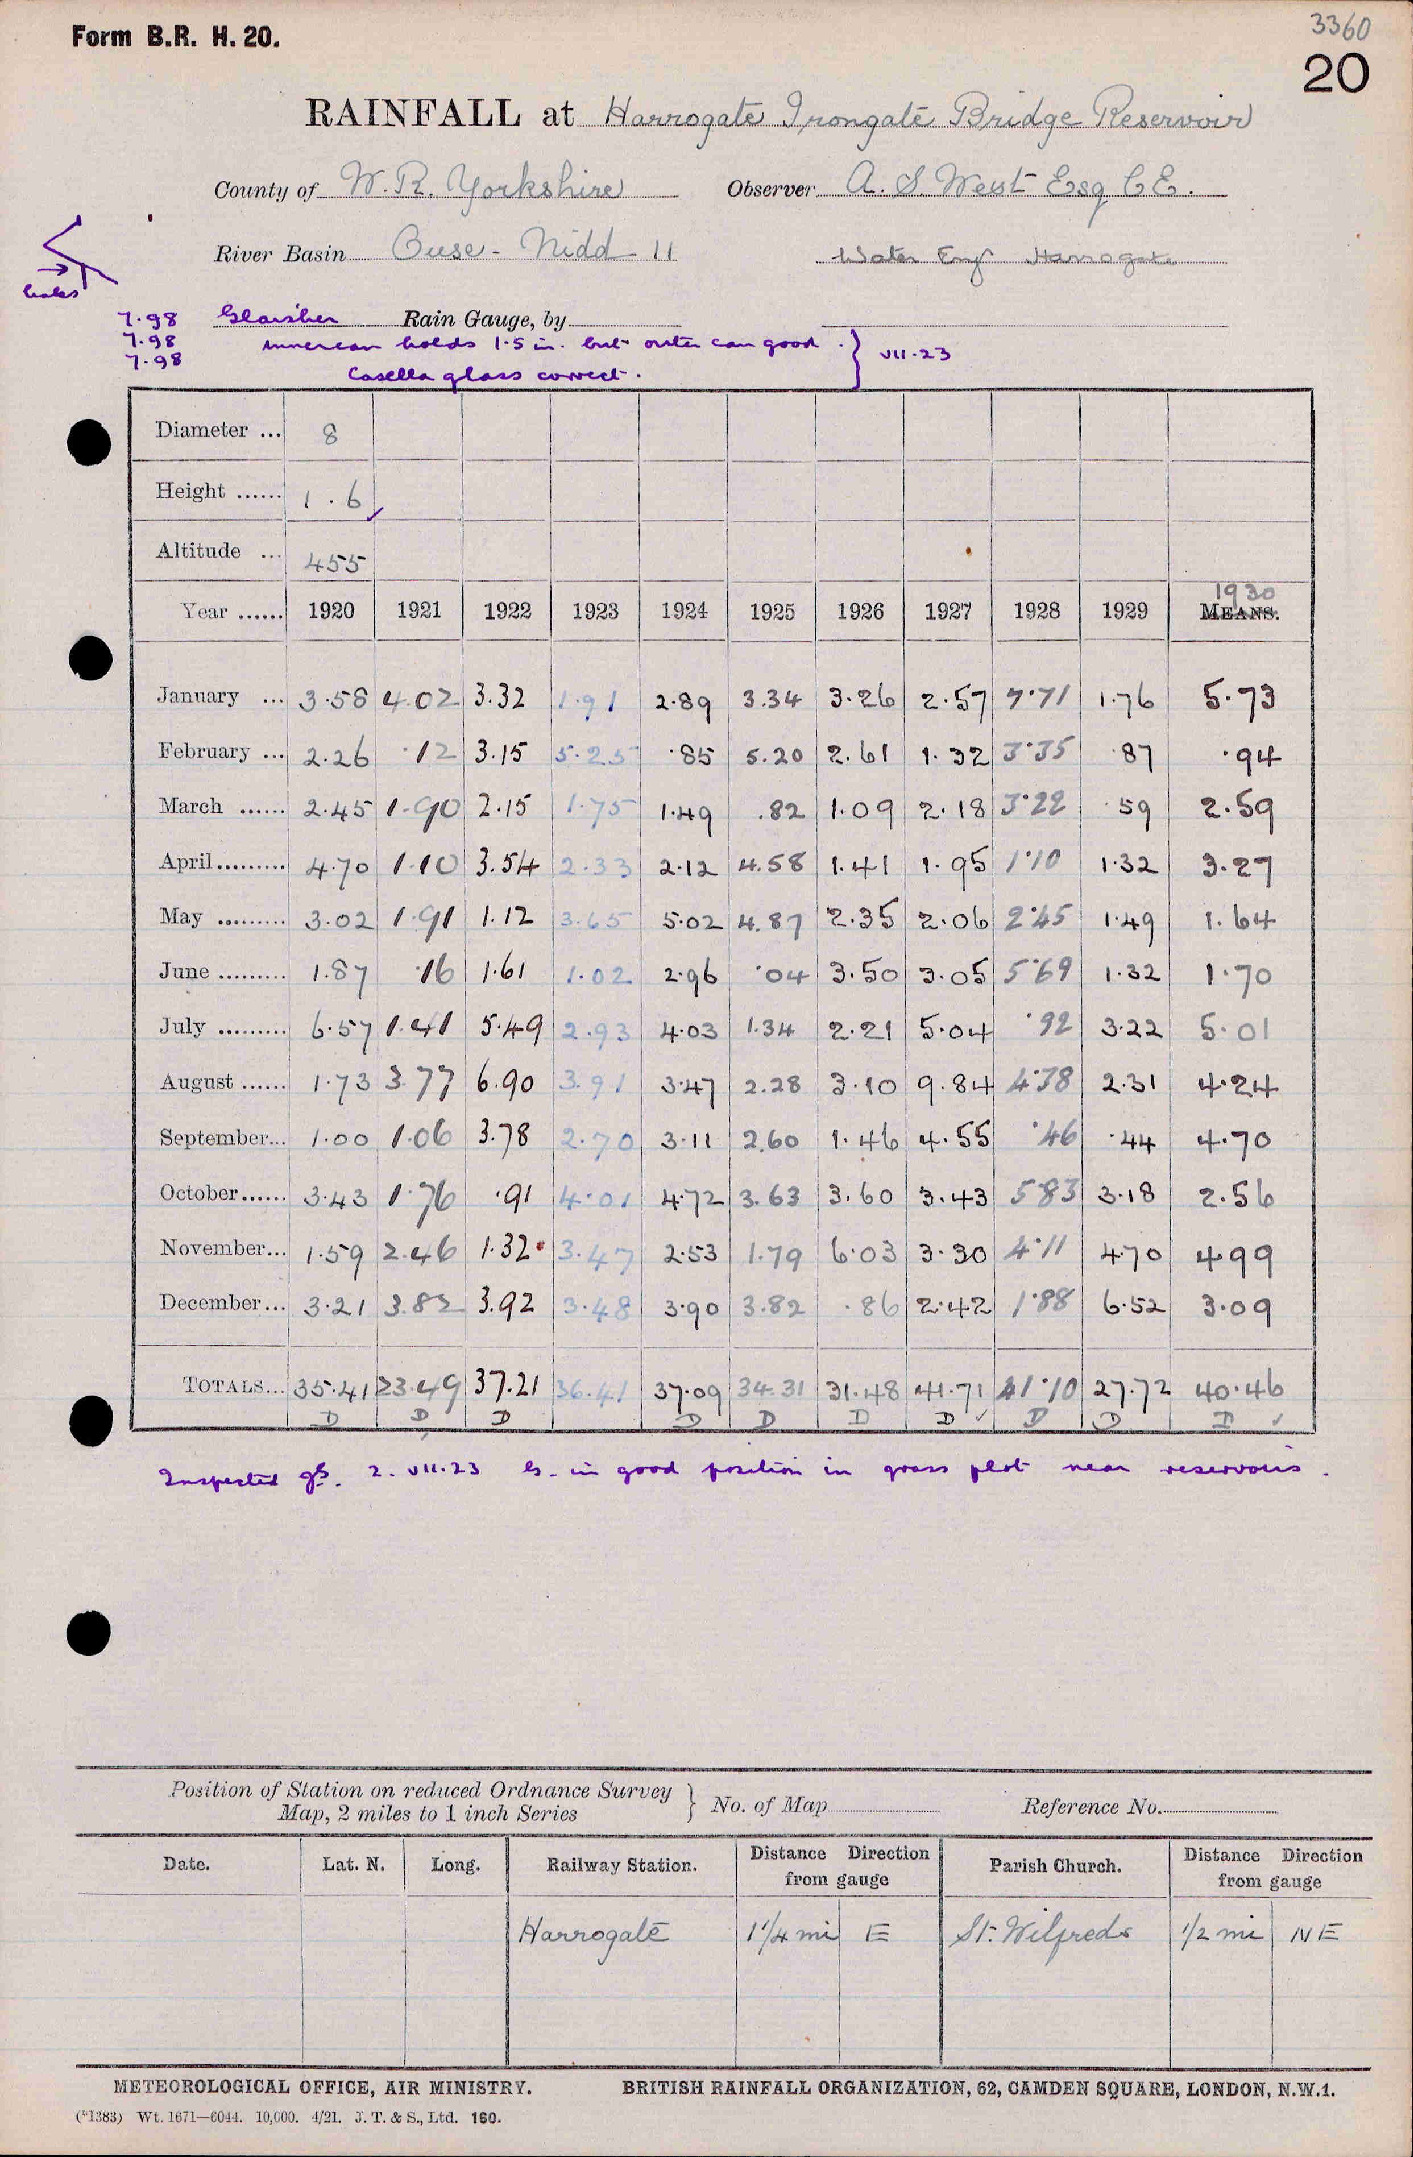 Form B.R. H. 20.
3360
20
RAINFALL at Harrogate Irongate Bridge Reservoir
County of W. R. Yorkshire Observer A. S. West Esq C.E.
River Basin Ouse - Nidd 11 Water Engr Harrogate
7.98 Glaisher Rain Gauge, by
7.98 inner can holds 1.5 in. but outer can good. } VII.23
7.98 Casella glass correct.
Diameter ... 8
Height ...... 1.6
Altitude ... 455
Year ...... 1920 1921 1922 1923 1924 1925 1926 1927 1928 1929 1930 MEANS.
January ... 3.58 4.02 3.32 1.91 2.89 3.34 3.26 2.57 7.71 1.76 5.73
February ... 2.26 .12 3.15 5.25 .85 5.20 2.61 1.32 3.35 .87 .94
March ...... 2.45 1.90 2.15 1.75 1.49 .82 1.09 2.18 3.22 .59 2.59
April ......... 4.70 1.10 3.54 2.33 2.12 4.58 1.41 1.95 1.10 1.32 3.27
May ......... 3.02 1.91 1.12 3.65 5.02 4.87 2.35 2.06 2.45 1.49 1.64
June ......... 1.87 .16 1.61 1.02 2.96 .04 3.50 3.05 5.69 1.32 1.70
July ......... 6.57 1.41 5.49 2.93 4.03 1.34 2.21 5.04 .92 3.22 5.01
August ...... 1.73 3.77 6.90 3.91 3.47 2.28 3.10 9.84 4.38 2.31 4.24
September... 1.00 1.06 3.78 2.70 3.11 2.60 1.46 4.55 .46 .44 4.70
October...... 3.43 1.76 .91 4.01 4.72 3.63 3.60 3.43 5.83 3.18 2.56
November... 1.59 2.46 1.32 3.47 2.53 1.79 6.03 3.30 4.11 4.70 4.99
December... 3.21 3.82 3.92 3.48 3.90 3.82 .86 2.42 1.88 6.52 3.09
TOTALS... 35.41 23.49 37.21 36.41 37.09 34.31 31.48 41.71 41.10 27.72 40.46
D D D D D D D D D D
Inspected 2. VII.23 G. in good position in grass plot near reservoirs.
Position of Station on reduced Ordnance Survey Map, 2 miles to 1 inch Series } No. of Map Reference No.
Date. Lat. N. Long. Railway Station. Distance Direction from gauge Parish Church. Distance Direction from gauge
Harrogate 1 1/4 mi E St. Wilfreds 1/2 mi NE
METEOROLOGICAL OFFICE, AIR MINISTRY. BRITISH RAINFALL ORGANIZATION, 62, CAMDEN SQUARE, LONDON, N.W.1.
(*1383) Wt. 1671—6044. 10,000. 4/21. J. T. & S., Ltd. 160.